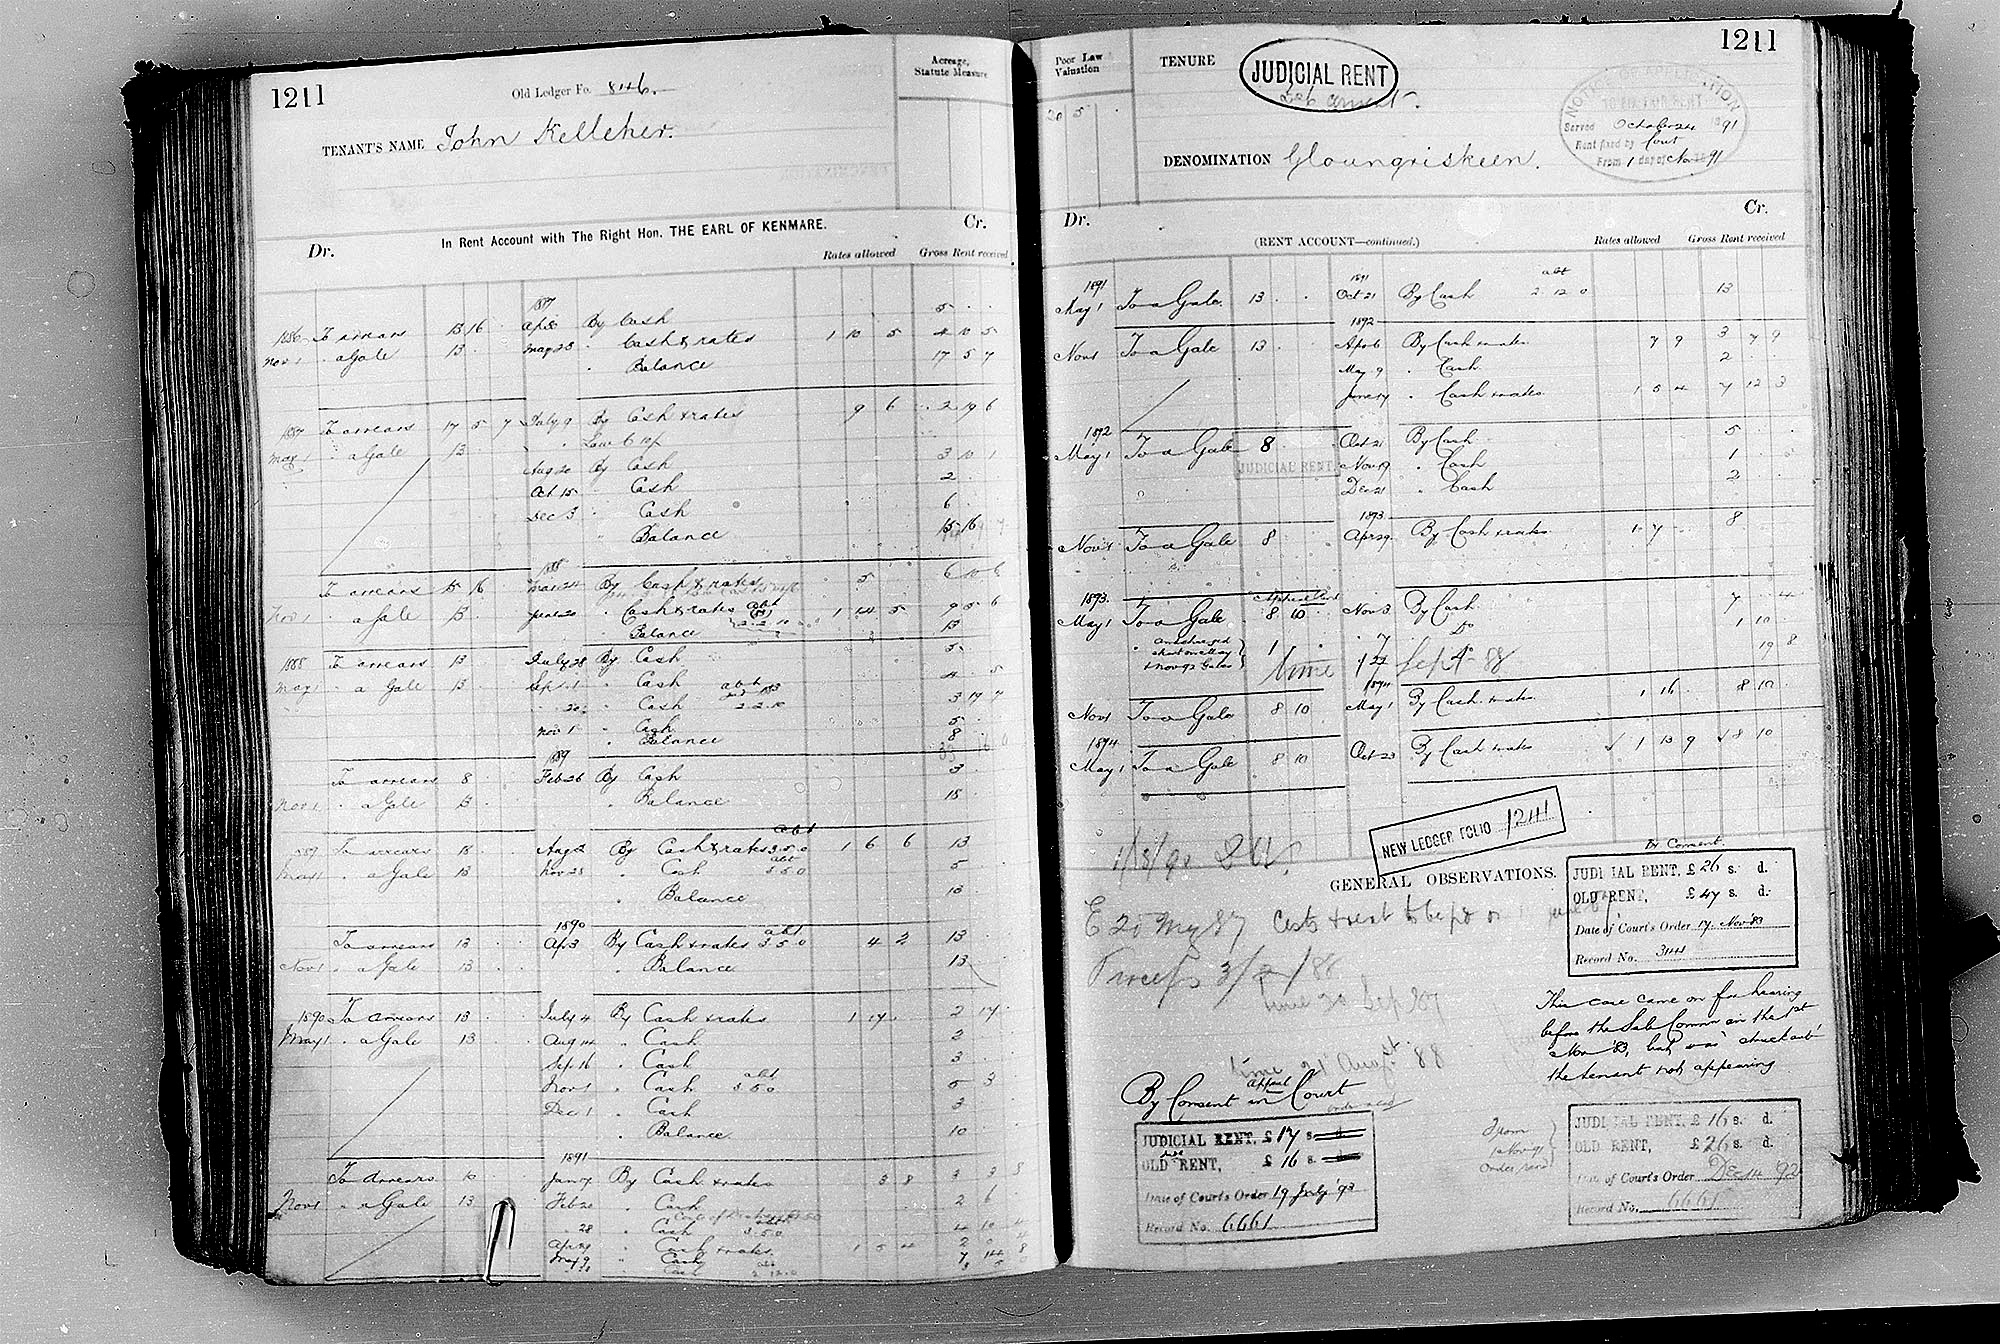 1211
Old Ledger Fo. 846.
Acreage, Statute Measure
TENANT'S NAME John Kelleher.
In Rent Account with The Right Hon. THE EARL OF KENMARE.
Dr. Cr.
Rates allowed Gross Rent received
1887
1886 To arrears 13 16 Ap 30 By Cash 5 . .
Nov 1 " a Gale 13 . May 28 " Cash & rates 1 10 5 4 10 5
" Balance 17 5 7
1887 To arrears 17 5 7 July 9 By Cash & rates 9 6 2 19 6
May 1 " a Gale 13
Aug 20 By Cash 3 10 1
Oct 15 " Cash 2
Dec 3 " Cash 6
" Balance 15 16
1888
To arrears 15 16 Mar 24 By Cash & rates 5 6 10 6
Nov 1 " a Gale 13 June 20 " Cash & rates abt 1 14 5 9 5 6
" Balance 13
1888 To arrears 13 July 28 By Cash 5
May 1 " a Gale 13 Sep 1 " Cash abt 4 . 5
" 20 " Cash 2.2.10 3 17 7
Nov 1 " Cash 5
" Balance 8
1889
To arrears 8 Feb 26 By Cash 3
Nov 1 " a Gale 13 " Balance 18
1889 To arrears 18 Aug 2 By Cash & rates abt 3 5 0 1 6 6 13
May 1 " a Gale 13 Nov 25 " Cash abt 3 5 0 5
" Balance 13
1890
To arrears 13 Ap 3 By Cash & rates abt 3 5 0 4 2 13
Nov 1 " a Gale 13 " Balance 13
1890 To arrears 13 July 4 By Cash & rates 1 17 2 17
May 1 " a Gale 13 Aug 14 " Cash 2
Sep 16 " Cash 3
Nov 1 " Cash abt 3 5 0 5 3
Dec 1 " Cash 3
" Balance 10
1891
To Arrears 10 Jan 7 By Cash & rates 3 8 3 3 8
Nov 1 " a Gale 13 Feb 20 " Cash 2 6
" 28 " Cash abt 3.5.0 4 10 4
Apr 29 " Cash & rates 1 5 4
May 9 " Cash 7 14 8
Cash abt 2 12.0
1211
Poor Law Valuation
20 5
TENURE JUDICIAL RENT
NOTICE OF APPLICATION
TO FIX FAIR RENT
Served October 24 1891
Rent fixed by Court
From 1 day of Nov 91
DENOMINATION Gloungriskeen.
Dr. Cr.
(RENT ACCOUNT—continued.)
Rates allowed Gross Rent received
1891 1891 abt
May 1 To a Gale 13 . . Oct 21 By Cash 2 12 0 13
1892
Nov 1 To a Gale 13 . Apr 6 By Cash & rates 7 9 3 7 9
May 9 " Cash 2
June 17 " Cash & rates 1 5 4 7 12 3
1892
May 1 To a Gale 8 Oct 21 By Cash 5
JUDICIAL RENT. Nov 19 " Cash 1
Dec 21 " Cash 2
1893
Nov 1 To a Gale 8 Apr 29 By Cash & rates 1 7 8
1893
May 1 To a Gale 8 10 Nov 3 By Cash 7 . 4
Do 1 10
1 time Sep 4 88 19 8
1894
Nov 1 To a Gale 8 10 May 1 By Cash & rates 1 16 8 10
1894
May 1 To a Gale 8 10 Oct 23 By Cash & rates 1 13 9 8 10
NEW LEDGER FOLIO 1241
GENERAL OBSERVATIONS.
By Consent.
JUDICIAL RENT, £ 26 s. d.
OLD RENT, £ 47 s. d.
Date of Court's Order 17 Nov 83
Record No. 344
E 20 May 87 Costs & rent to be pd on
Process 3/2/88
time 20 Sep 87
This case came on for hearing
before the Sub Commn on the 1st
Nov '83, but was struck out
the tenant not appearing
time Augst 88
By Consent in Appeal Court
JUDICIAL RENT, £ 17 s. d.
OLD RENT, £ 16 s.
Date of Court's Order 19 July '93
Record No. 6661
From
1 Nov 91
JUDICIAL RENT, £ 16 s. d.
OLD RENT, £ 26 s. d.
Date of Court's Order Dec 14 '92
Record No. 6661